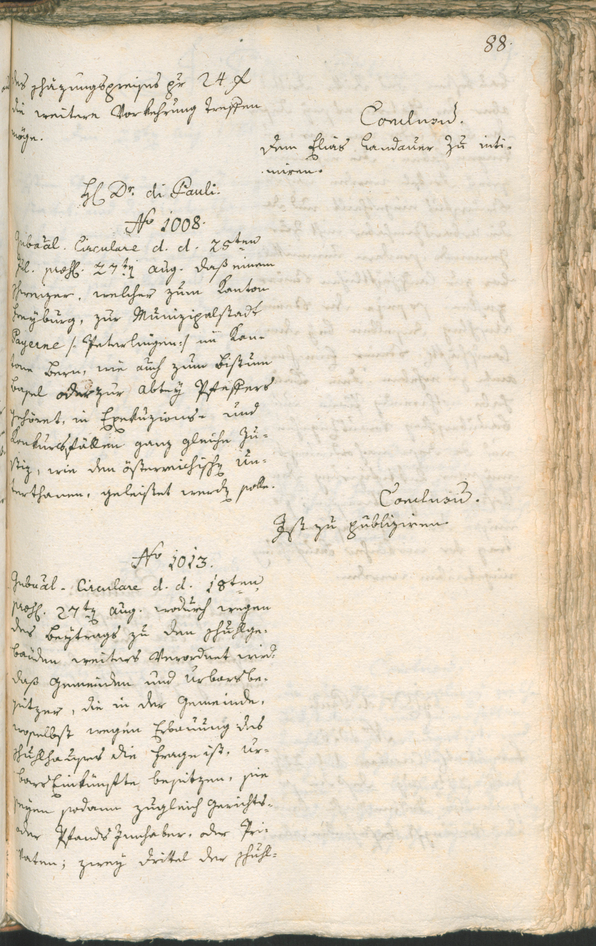 88.
des schäzungspreises pr 24 f
die weitere Vorkehrung treffen
möge.
Conclusum.
Dem Elias Landauer zu inti-
miren.
H Dr. di Pauli.
No 1008.
Gubäal. Circulare d. d. 28ten
Jul. præs. 27ten Aug. daß einem
Schweizer, welcher zum Kanton
Freyburg, zur Munizipalstadt
Payerne /: Peterlingen :/ im Kan-
tone Bern, wie auch zum Bistum
Basel oder zur Abtey Pfeffers
gehöret, in Exekuzions- und
Konkursfällen ganz gleiche Ju-
stiz, wie den österreichischen Un-
terthanen, geleistet werden solle.
Conclusum.
Ist zu publiziren.
No 1013.
Gubäal-Circulare d. d. 18ten
præs. 27ten Aug. wodurch wegen
des Beytrags zu den Schulge-
bäuden weiters verordnet wird:
daß Gemeinden und Urbarsbe-
sitzer, die in der Gemeinde,
woselbst wegen Erbauung des
Schulhauses die Frage ist, Ur-
bareinkünfte besitzen, sie
seyen sodann zugleich Gerichts-
oder Pfands Innhaber, oder Pri-
vaten; zwey drittel der Schul-